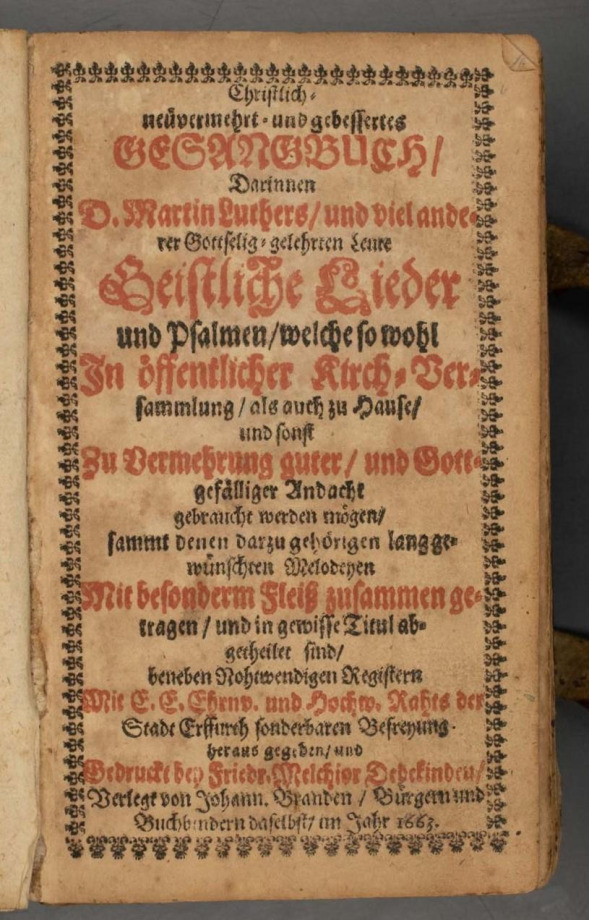 Christlich-
neüvermehrt- und gebessertes
GESANGBUCH/
Darinnen
D. Martin Luthers/ und viel ande-
rer Gottselig-gelehrten Leute
Geistliche Lieder
und Psalmen/ welche so wohl
In öffentlicher Kirch-Ver-
sammlung/ als auch zu Hause/
und sonst
Zu Vermehrung guter/ und Gott-
gefälliger Andacht
gebraucht werden mögen/
sammt denen darzu gehörigen langge-
wünschten Melodeyen
Mit besonderm Fleiß zusammen ge-
tragen/ und in gewisse Titul ab-
getheilet sind/
beneben Nohtwendigen Registern
Mit E. E. Ehrnv. und Hochw. Rahts der
Stadt Erffurth sonderbaren Befreyung
heraus gegeben/ und
Gedruckt bey Friedr. Melchior Dedekinden/
Verlegt von Johann. Branden/ Bürgern und
Buchbindern daselbst/ im Jahr 1663.